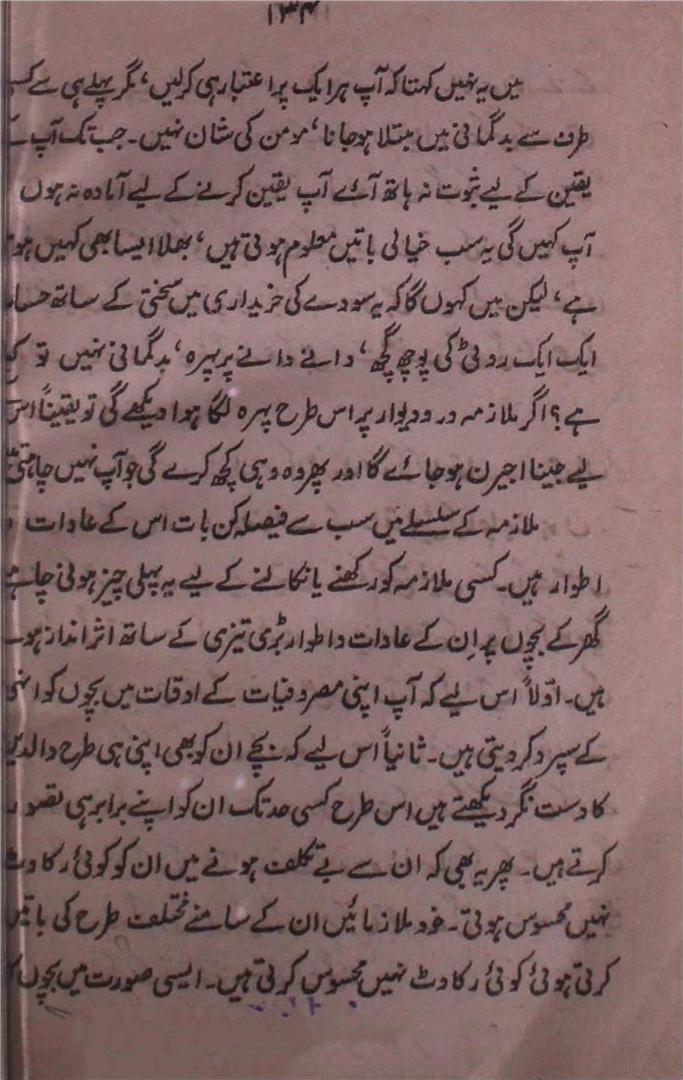 ۱۳۴
میں یہ نہیں کہتا کہ آپ ہر ایک پر اعتبار ہی کرلیں، مگر پہلے ہی سے
طرف سے بدگمانی میں مبتلا ہوجانا، مومن کی شان نہیں۔ جب تک آپ
یقین کے لیے ثبوت نہ ہاتھ آئے آپ یقین کرنے کے لیے آمادہ نہ ہوں
آپ کہیں گی یہ سب خیالی باتیں معلوم ہوتی ہیں، بھلا ایسا بھی کہیں
ہے، لیکن میں کہوں گا کہ یہ سودے کی خریداری میں سختی کے ساتھ
ایک ایک روٹی کی پوچھ گچھ، دانے دانے پر پہرہ، بدگمانی نہیں تو
ہے؟ اگر ملازمہ در و دیوار پر اس طرح پہرہ لگا ہوا دیکھے گی تو یقیناً اس
لیے جینا اجیرن ہوجائے گا اور پھر وہ وہی کچھ کرے گی جو آپ نہیں چاہتی
ملازمہ کے سلسلے میں سب سے فیصلہ کن بات اس کے عادات و
اطوار ہیں۔ کسی ملازمہ کو رکھنے یا نکالنے کے لیے یہ پہلی چیز ہونی
گھر کے بچوں پر اِن کے عادات و اطوار بڑی تیزی کے ساتھ اثر انداز
ہیں۔ اوّلاً اس لیے کہ آپ اپنی مصروفیات کے اوقات میں بچوں کو
کے سپرد کردیتی ہیں۔ ثانیاً اس لیے کہ بچے ان کو بھی اپنی ہی طرح
کا دست نگر دیکھتے ہیں اس طرح کسی حد تک ان کو اپنے برابر ہی تصور
کرتے ہیں۔ پھر یہ بھی کہ ان سے بے تکلف ہونے میں ان کو کوئی
نہیں محسوس ہوتی۔ خود ملازمائیں ان کے سامنے مختلف طرح کی باتیں
کرتی ہوئی کوئی رکاوٹ نہیں محسوس کرتی ہیں۔ ایسی صورت میں بچوں